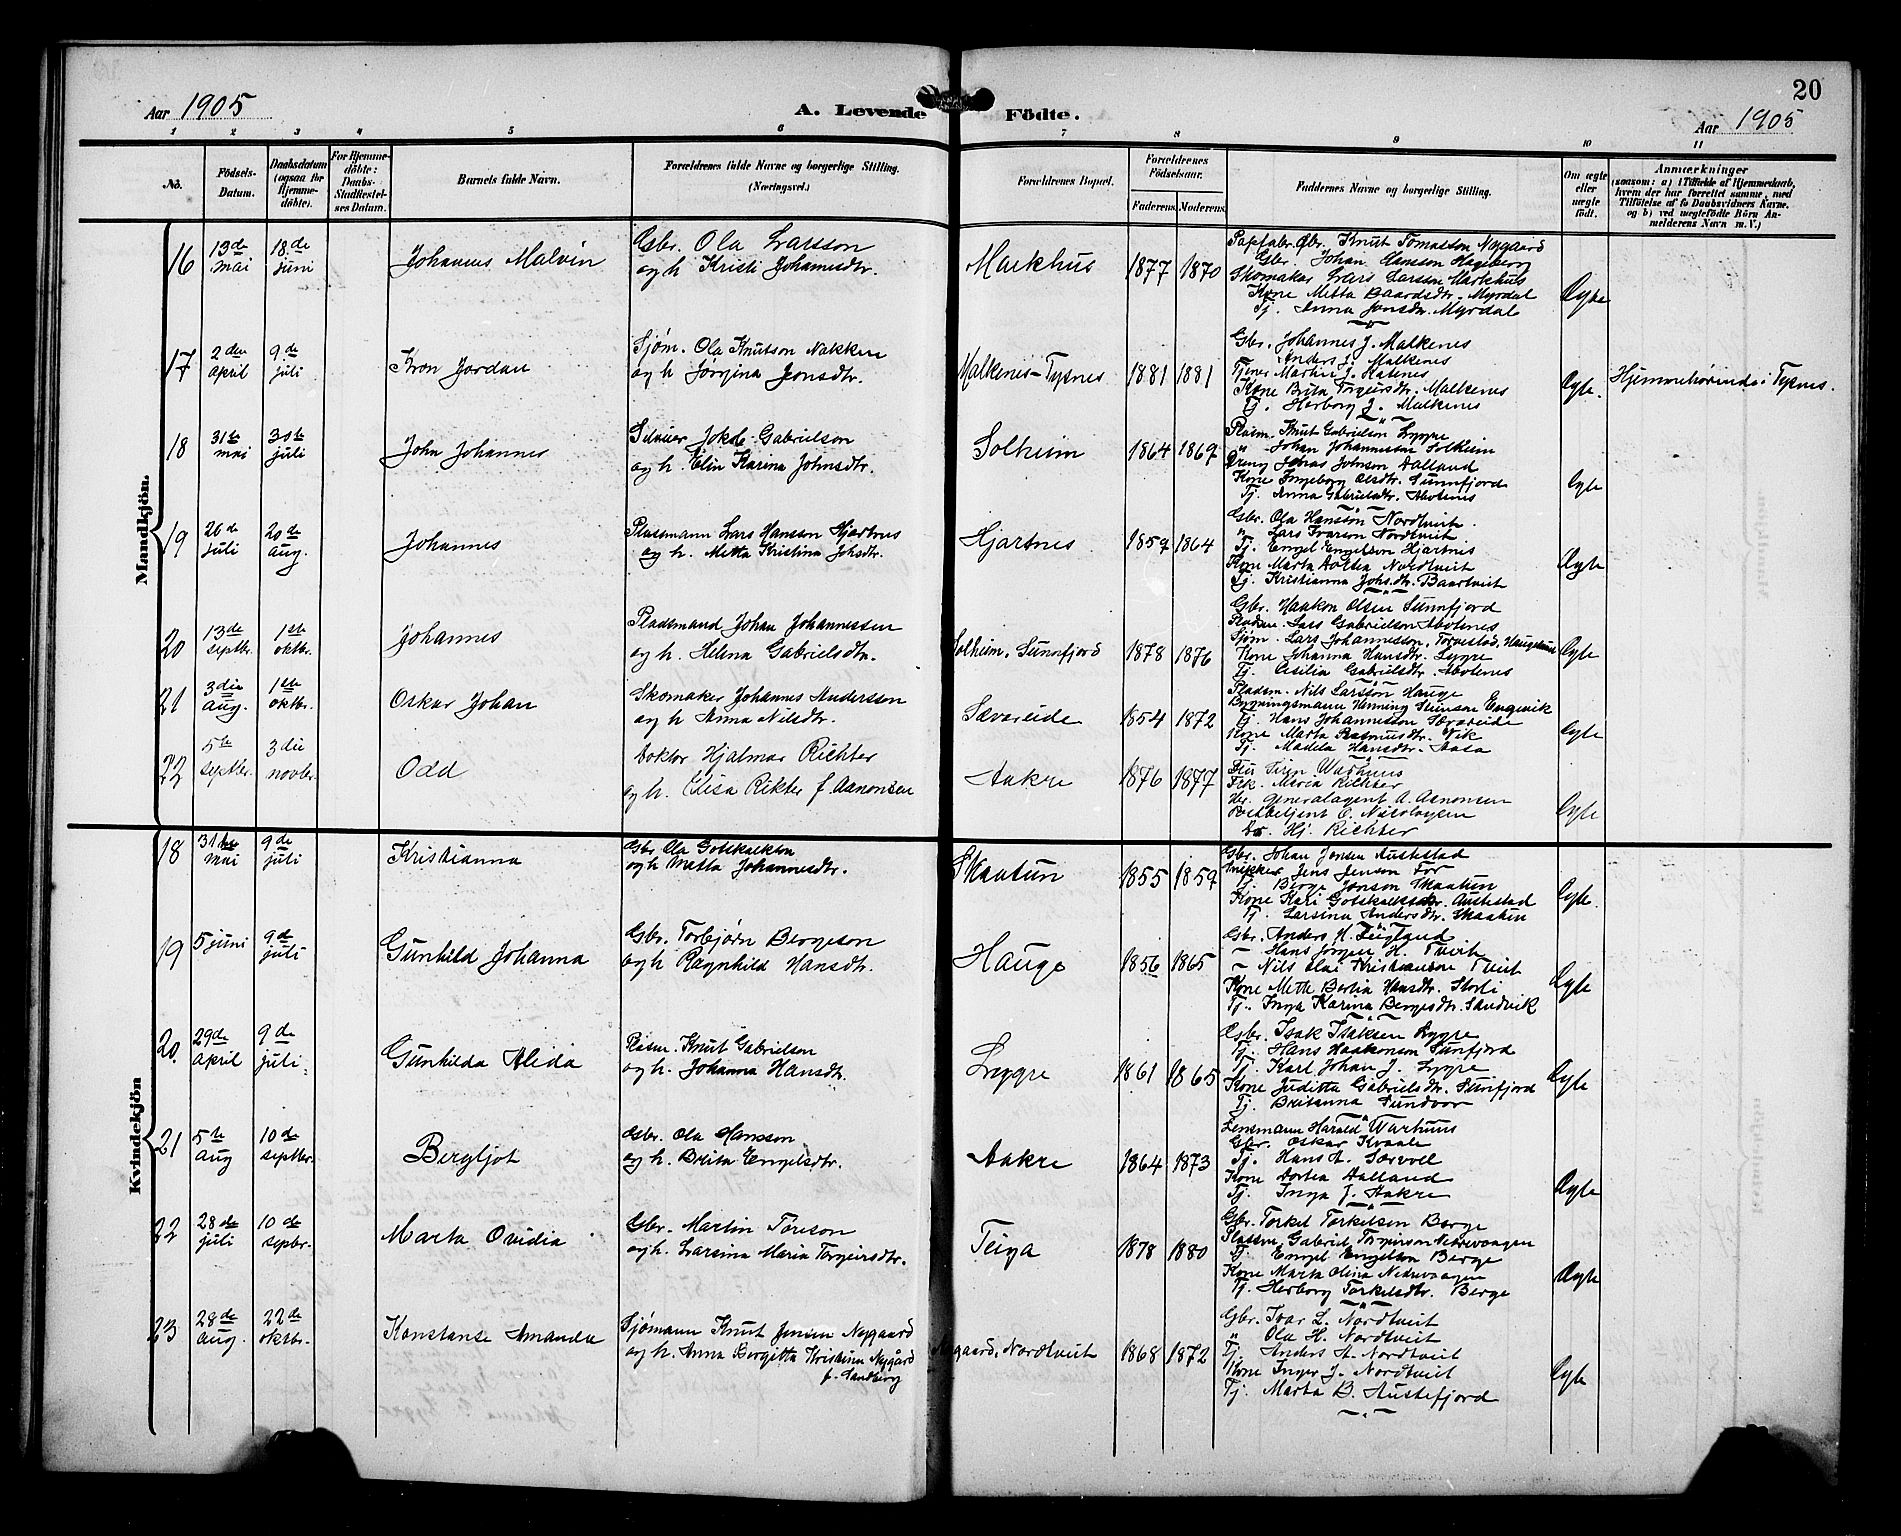 20
Aar 1905
A. Levende Födte.
Aar 1905
1 2 3 4 5 6 7 8 9 10 11
No.
Födsels-Datum.
Daabsdatum (ogsaa for Hjemmedöbte).
For Hjemmedöbte: Daabs-Stadfæstelses Datum.
Barnets fulde Navn.
Forældrenes fulde Navne og borgerlige Stilling. (Næringsvei.)
Forældrenes Bopæl.
Forældrenes Födselsaar.
Faderens. Moderens.
Faddernes Navne og borgerlige Stilling.
Om ægte eller uægte födt.
Anmærkninger
(saasom: a) i Tilfælde af Hjemmedaab, hvem der har forrettet samme, med Tilföielse af to Daabsvidners Navne, og b) ved uægtefödte Börn Anmelderens Navn m. V.)
Mandkjön.
16 13de mai 18de juni Johannes Malvin Gbr. Ola Larsson
og h. Kristi Johannesdtr. Markhus 1877 1870
Gbr. Knut Tomasson Nygaard
Gbr. Johan Hansson Hageberg
Skomaker Lars Larsson Markhus
Kone Metta Baardsdtr. Myrdal
Tj. Anna Jonsdtr. Myrdal
Ægte
17 2den april 9de juli Kron Jordan Sjøm. Ola Knutson Nakken
og h. Jørgina Jensdtr. Malkenes-Tysnes 1881 1881
Gbr. Johannes J. Malkenes
Anders J. Malkenes
Tjener Martin J.
Kone Brita Torgeirsdtr. Malkenes
Tj. Herborg J. Malkenes
Ægte. Hjemmehørende i Tysnes.
18 31te mai 30te juli John Johannes Jakob Gabrielson
og h. Elin Karina Johnsdtr. Solheim 1864 1869
Plasm. Knut Gabrielson Lygre
" Johan Johannessen Solheim
Dreng Johas Johnson Dalland
Kone Ingeborg Olsdtr. Sunnfjord
Tj. Anna Gabrielsdtr.
Ægte
19 26de juli 20de aug. Johannes Plassmann Lars Hansson Hjartnes
og h. Metta Kristina Johsdtr. Hjartnes 1859 1864
Gbr. Ola Hansson Nordtveit.
" Lars Ivarson Nordtveit
Tj. Engel Engelson Hjartnes
Kone Marta Dortea Nordtveit
Tj. Kristianna Johs.dtr. Baartveit
Ægte
20 13de septbr. 1ste oktbr. Johannes Pladsmand Johan Johannessen
og h. Helena Gabrielsdtr. Solheim, Sunnfjord 1878 1876
Gbr. Haakon Olsen Sunnfjord
Pladsm. Lars Gabrielson
Sjøm. Lars Johannesson, Torvestad, Haugesund
Kone Johanna Hansdtr. Lygre
Tj. Cecilia Gabrielsdtr.
Ægte
21 3die aug. 1ste oktbr. Oskar Johan Skomaker Johannes Andersson
og h Anna Nilsdtr. Sævareide 1854 1872
Pladsm. Nils Larsson Hauge
Bygningsmann Henning Engevik
Tj. Hans Johannesson Sævareide
Kone Marta Rasmusdtr. Vik
Tj. Madela Hansdtr. Aasa
Ægte
22 5te septbr. 3die novbr. Odd Doktor Hjalmar Richter
og h. Elisa Rikter f. Asmonsen Aakre 1876 1877
Fru Siren Warhuus
Frk. Maria Richter
Hr. Generalagent A. Asmonsen
Dr. Hj. Richter
Ægte
Kvindekjön
18 31te mai 9de juli Kristianna Gbr. Ola Gotskalkson
og h Metta Johannesdtr. Skaatun 1855 1859
Gbr. Johan Jensen Austestad
Snikker Jens Jenson
Tj. Berge Jonson Skaatun
Kone Kari Gotskalksdtr. Austestad
Tj. Larsina Andersdtr. Skaatun
Ægte.
19 5 juni 9de juli Gunhild Johanna Gbr. Torbjørn Bergeson
og h Ragnhild Hansdtr. Hauge 1856 1865
Gbr. Anders H. Teigland
– Hans Jørgen H. Tveit
– Nils Olai Kristianson Tveit
Kone Mette Bertia Hansdtr. Storli
Tj. Inga Karina Bergesdtr. Sandvik
Ægte
20. 29de april 9de juli. Gunhilda Alida Plasm. Knut Gabrielson
og h. Johanna Hansdtr. Lygre 1861 1865
Gbr. Isak Isaksen Lygre
Tj. Hans Haakonson Sunfjord
Tj. Karl Johan J. Lygre
Kone Juditta Gabrielsdtr. Sunnfjord
Tj. Britanna Sundvor
Ægte
21 5te aug 10de septbr. Bergljot Gbr. Ola Hansson
og h. Brita Engelsdtr. Aakre 1864 1873
Lensmann Harald Warhuus
Gbr. Oskar Kvaale
Tj. Hans A. Særvoll
Kone Dortea Dalland
Tj. Inga J. Aakre
Ægte
22 28de juli 10de sepbr. Marta Ovidia Gbr. Martin Toreson
og h. Larsina Maria Torgeirsdtr. Teiga 1878 1880
Gbr. Torkel Torkelsen Berge
Plassm. Gabriel Torgeirson Nedrevaagen
Tj. Engel Engelson Berge
Kone Marta Olina Nedrevaagen
Tj. Herborg Torkelsdtr. Berge
Ægte
23 28de aug. 22de oktbr. Konstanse Amanda Sjømann Knut Jensen Nygaard
og h. Anna Bergitta Kristina Nygård
f. Sandberg Nygaard, Nordtveit 1868 1872
Gbr. Ivar L. Nordtveit
" Ola H. Nordtveit
Tj. Anders A. Nordtveit
Kone Inger J. Nordtveit
Tj. Marta B. Austefjord
Ægte